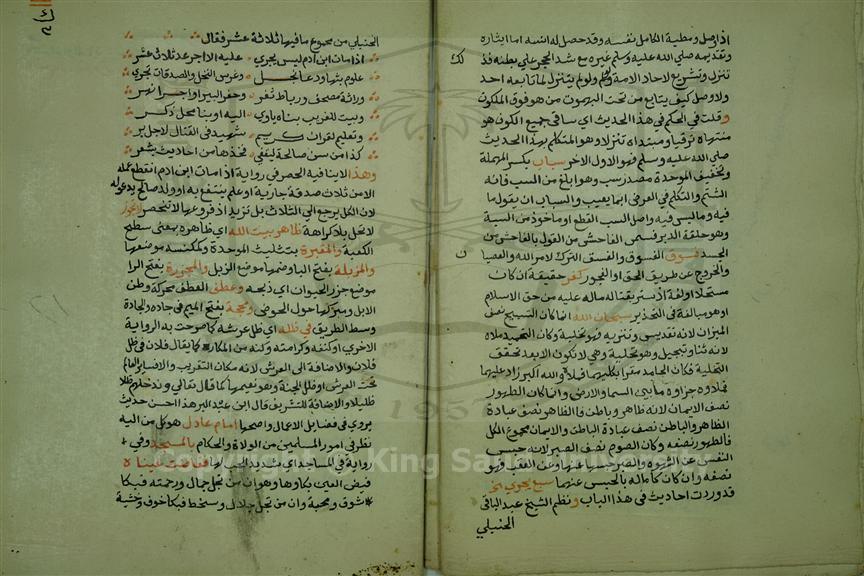 اذا وصل ومطية الكامل نفسه وقد حصل له انسه اما ايثاره
وتقديمه صلي الله عليه وسلم غيره مع شد الحجر علي بطنه فذ
تنزل وتشريع لاحاد الامة ولو لم يتنزل لما تابعه احد
ولا وصل كيف يتابع من تحت البهموت من هو فوق الملكوت
وقلت في الحكم في هذا الحديث اي ساقي جميع الكون هو
منتهاه ترقيا ومبتداه تنزلا وهو المتكلم بهذا الحديث
صلي الله عليه وسلم فهو الاول الاخر سباب بكسر المهملة
وتخفيف الموحدة مصدر سب وهو ابلغ من السب فانه
الشتم والتكلم في العرض بما يعيب والسباب ان يقول ما
فيه وما ليس فيه واصل السب القطع او ماخوذ من السبة
وهو حلقة الدبر فسمي الفاحش من القول بالفاحش من
الجسد فسوق الفسوق والفسق الترك لامر الله والعصيان
والخروج عن طريق الحق او الفجور كفر حقيقة ان كان
مستحلا او لغة اذ ستر بقتاله ماله عليه من حق الاسلام
او هو مبالغة في التحذير سبحان الله انما كان التسبيح نصف
الميزان لانه تقديس وتنزيه فهو تخلية وكان التحميد ملاه
لانه ثناء وتبجيل وهو تحلية وهي لا تكون الا بعد تحقق
التخلية فكان الحامد مقرا بكليهما فملا والله اكبر زاد عليهما
فملاوه جزاوه ما بين السما والارض وانما كان الطهور
نصف الايمان لانه ظاهر وباطن فالظاهر نصف عبادة
الظاهر والباطن نصف عبادة الباطن والايمان مجموع الكل
فالطهور نصفه وكان الصوم نصف الصبر لانه حبس
النفس عن الشهوة والصبر حبسها عنها وعن الغضب فهو
نصفه وان كان كماله بالحبس عنهما سبع يجري الخ
قد وردت احاديث في هذا الباب ونظم الشيخ عبد الباقي
الحنبلي
الحنبلي من مجموع ما فيها ثلاثة عشر فقال
اذا مات ابن ادم ليس يجري عليه الاجر عد ثلاث عشر
علوم بثها ودعا نجل وغرس النخل والصدقات تجري
وراثة مصحف ورباط ثغر وحفر البير او اجرا نهر
وبيت للغريب بناه ياوي اليه او بنا محل ذكر
وتعليم لقران كريم شهيد في القتال لاجل بر
كذا من سن صالحة ليقفي فخذها من احاديث بشعر
وهذا لا ينافيه الحصر في رواية اذا مات ابن ادم انقطع عمله
الا من ثلاث صدقة جارية او علم ينتفع به او ولد صالح يدعو له
لان الكل يرجع الي الثلاث بل تزيد اذ فروعها لا تنحصر لا تجوز
لا تحل بلا كراهة ظاهر بيت الله اي ظاهره بمعني سطح
الكعبة والمقبرة بتثليث الموحدة وكمكنسة موضعها
والمزبلة بفتح البا وضمها موضع الزبل والمجزرة بفتح الزا
موضع جزر الحيوان اي ذبحه وعطن العطن محركة وطن
الابل ومبركها حول الحوض ومحجة بفتح الميم في جاده والجادة
وسط الطريق في ظله اي ظل عرشه كما صرحت به الرواية
الاخري او كنفه وكرامته وكنه من المكاره كما يقال فلان في ظل
فلان والاضافة الي العرش لانه مكان التقريب
تحت العرش او ظل الجنة وهو نعيمها كما قال تعالي وندخلهم ظلا
ظليلا والاضافة للتشريف قال ابن عبد البر هذا احسن حديث
يروي في فضايل الاعمال واصحها امام عادل هو كل من اليه
نظر في امور المسلمين من الولاة والحكام بالمسجد وفي
رواية في المساجد اي شديد الحب لها ففاضت عيناه
فيض العين بكاوها وهو ان من تجلي جمال ورحمته فبكا
شوق ومحبة وان من تجلي جلال وسخط فبكا خوف وخشية